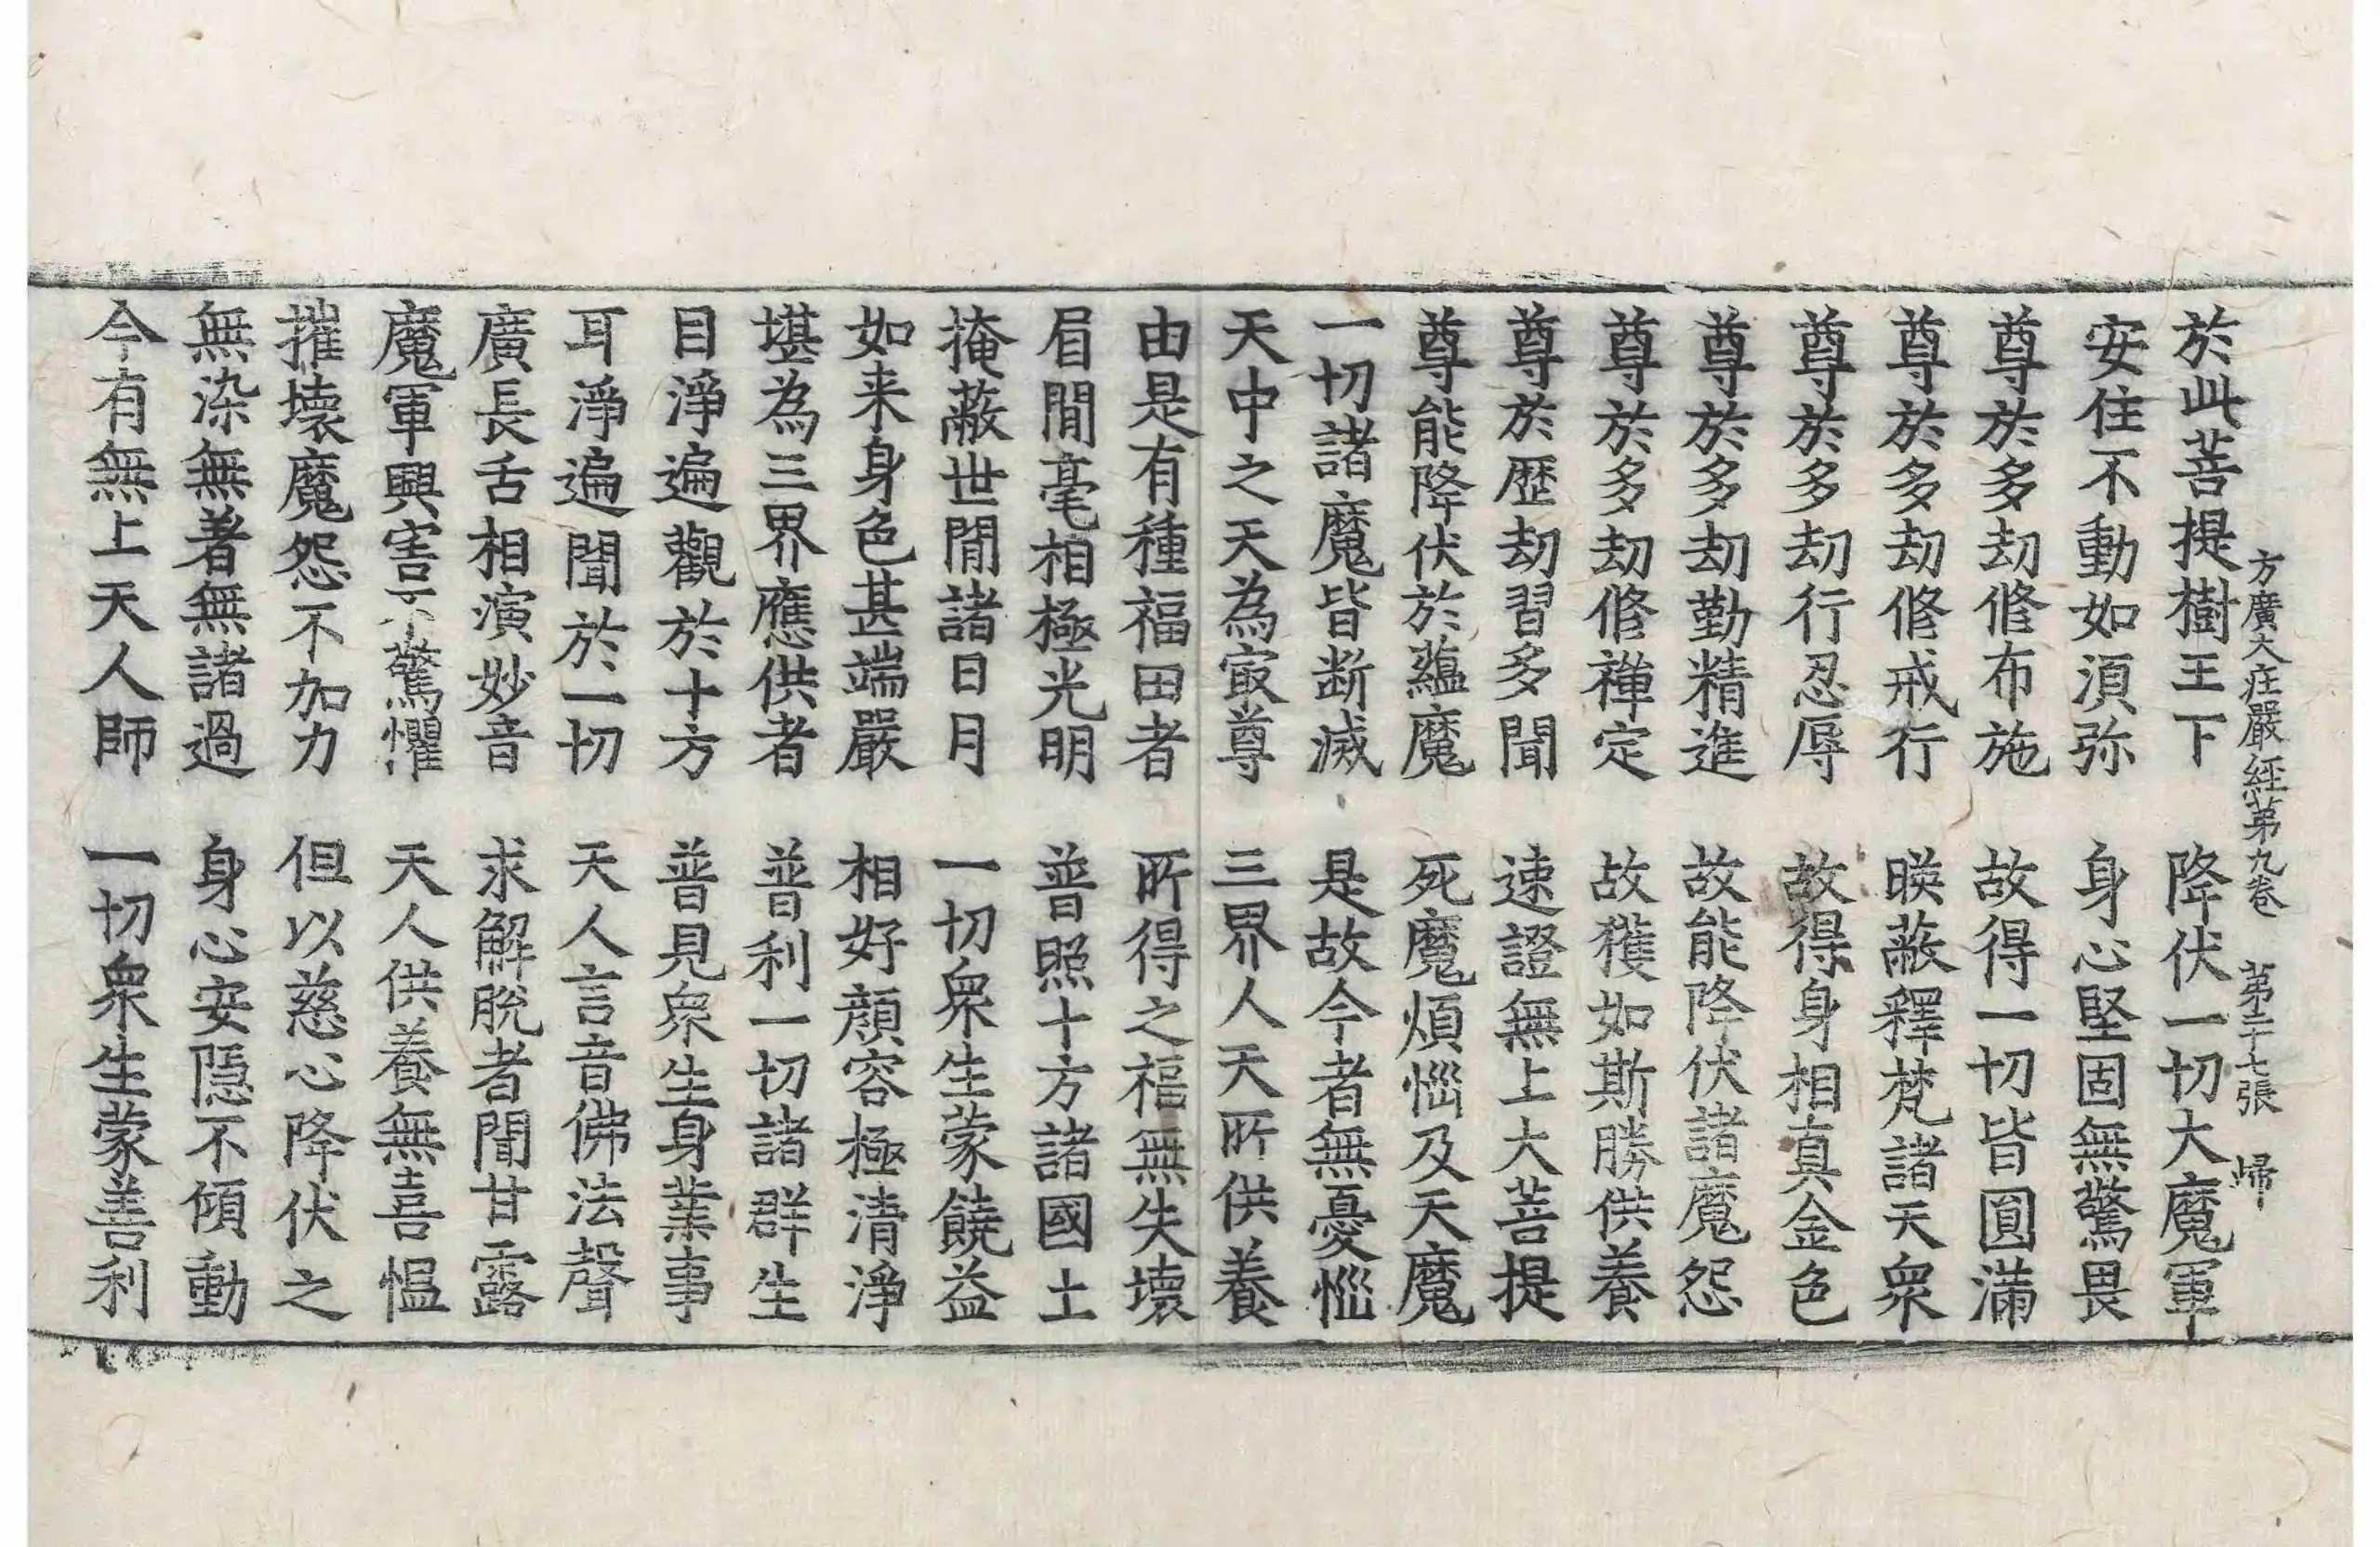 方廣大庄嚴經第九卷 第二十七張 㱕
於此菩提樹王下 降伏一切大魔軍
安住不動如湏弥 身心堅固無驚畏
尊於多劫修布施 故得一切皆圓滿
尊於多劫修戒行 暎蔽釋梵諸天衆
尊於多劫行忍辱 故得身相真金色
尊於多劫勤精進 故能降伏諸魔怨
尊於多劫修禪定 故獲如斯勝供養
尊於歷劫習多聞 速證無上大菩提
尊能降伏於蘊魔 死魔煩惱及天魔
一切諸魔皆断滅 是故今者無憂惱
天中之天為㝡尊 三界人天所供養
由是有種福田者 所得之福無失壞
眉間毫相極光明 普照十方諸國土
掩蔽世間諸日月 一切衆生蒙饒益
如来身色甚端嚴 相好顏容極清淨
堪為三界應供者 普利一切諸群生
目淨遍觀於十方 普見衆生身業事
耳淨遍聞於一切 天人言音佛法聲
廣長舌相演妙音 求解脫者聞甘露
魔軍興害不驚懼 天人供養無喜愠
摧壞魔怨不加力 但以慈心降伏之
無染無著無諸過 身心安隱不傾動
今有無上天人師 一切衆生蒙善利